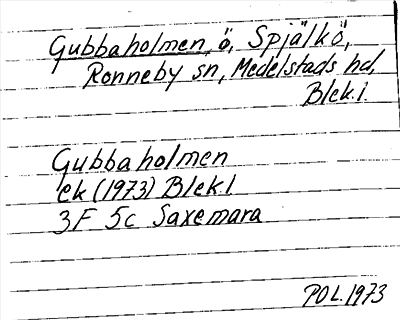 Gubbaholmen, ö, Spjälkö,
Ronneby sn, Medelstads hd,
Blek.l.
Gubbaholmen
ek (1973) Blek.l
3F 5c Saxemara
POL.1973